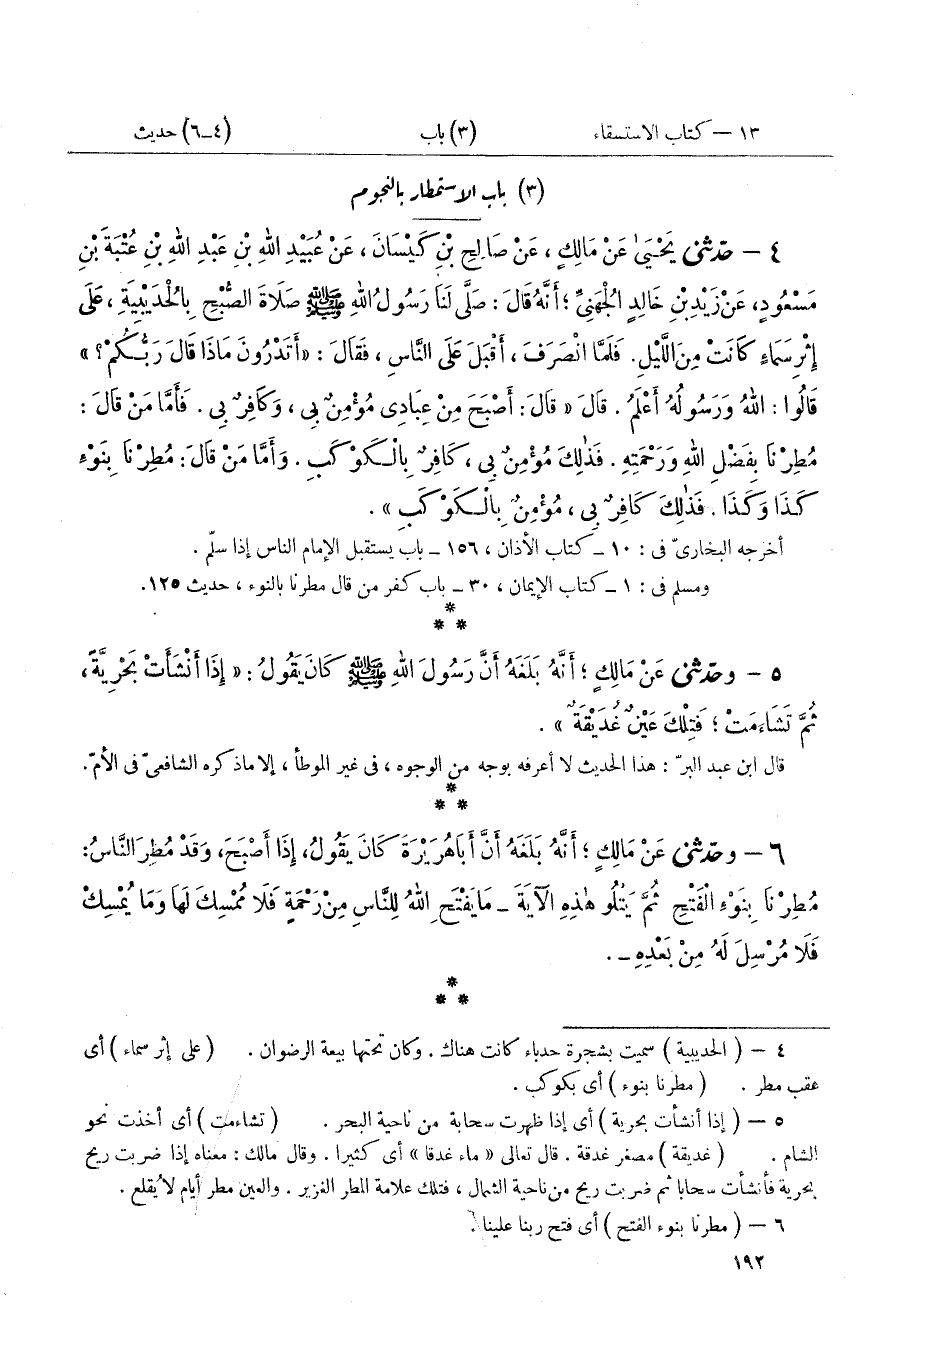 ١٣ – كتاب الاستسقاء (٣) باب (٤–٦) حديث
(٣) باب الاستمطار بالنجوم
٤ – حدّثنى يَحْيَىٰ عَنْ مَالِكٍ ، عَنْ صَالِحِ بْنِ كَيْسَانَ ، عَنْ عُبَيْدِ اللهِ بْنِ عَبْدِ اللهِ بْنِ عُتْبَةَ بْنِ
مَسْعُودٍ، عَنْ زَيْدِ بْنِ خَالِدٍ الْجُهَنِيِّ ؛ أَنَّهُ قَالَ : صَلَّى لَنَا رَسُولُ اللهِ ﷺ صَلَاةَ الصُّبْحِ بِالْحُدَيْبِيَةِ ، عَلَى
إِثْرِ سَمَاءٍ كَانَتْ مِنَ اللَّيْلِ. فَلَمَّا انْصَرَفَ ، أَقْبَلَ عَلَى النَّاسِ ، فَقَالَ : «أَتَدْرُونَ مَاذَا قَالَ رَبُّكُمْ ؟ »
قَالُوا : اللهُ وَرَسُولُهُ أَعْلَمُ . قَالَ « قَالَ : أَصْبَحَ مِنْ عِبَادِى مُؤْمِنٌ بِى ، وَكَافِرٌ بِى . فَأَمَّا مَنْ قَالَ :
مُطِرْنَا بِفَضْلِ اللهِ وَرَحْمَتِهِ . فَذٰلِكَ مُؤْمِنٌ بِى ، كَافِرٌ بِالْكَوْكَبِ . وَأَمَّا مَنْ قَالَ : مُطِرْنَا بِنَوْءِ
كَذَا وَكَذَا . فَذٰلِكَ كَافِرٌ بِى ، مُؤْمِنٌ بِالْكَوْكَبِ » .
أخرجه البخارىّ فى : ١٠ – كتاب الأذان ، ١٥٦ – باب يستقبل الإمام الناس إذا سلّم .
ومسلم فى : ١ – كتاب الإيمان ، ٣٠ – باب كفر من قال مطرنا بالنوء ، حديث ١٢٥.
*
* *
٥ – وحدّثنى عَنْ مَالِكٍ ؛ أَنَّهُ بَلَغَهُ أَنَّ رَسُولَ اللهِ ﷺ كَانَ يَقُولُ : « إِذَا أَنْشَأَتْ بَحْرِيَّةً ،
ثُمَّ تَشَاءَمَتْ ؛ فَتِلْكَ عَيْنٌ غُدَيْقَةٌ » .
قال ابن عبد البرّ : هذا الحديث لا أعرفه بوجه من الوجوه ، فى غير الموطأ ، إلا ما ذكره الشافعىّ فى الأمّ.
*
* *
٦ – وحدّثنى عَنْ مَالِكٍ ؛ أَنَّهُ بَلَغَهُ أَنَّ أَبَا هُرَيْرَةَ كَانَ يَقُولُ، إِذَا أَصْبَحَ، وَقَدْ مُطِرَ النَّاسُ:
مُطِرْنَا بِنَوْءِ الْفَتْحِ ثُمَّ يَتْلُو هٰذِهِ الْآيَةَ – مَا يَفْتَحِ اللهُ لِلنَّاسِ مِنْ رَحْمَةٍ فَلَا مُمْسِكَ لَهَا وَمَا يُمْسِكْ
فَلَا مُرْسِلَ لَهُ مِنْ بَعْدِهِ – .
*
* *
٤ – ( الحديبية ) سميت بشجرة حدباء كانت هناك . وكان تحتها بيعة الرضوان . ( على إثر سماء ) أى
عقب مطر . ( مطرنا بنوء ) أى بكوكب .
٥ – ( إذا أنشأت بحرية ) أى إذا ظهرت سحابة من ناحية البحر . ( تشاءمت ) أى أخذت نحو
الشام . ( غديقة ) مصغر غدقة . قال تعالى « ماء غدقا » أى كثيرا . وقال مالك : معناه إذا ضربت ريح
بحرية فأنشأت سحابا ثم ضربت ريح من ناحية الشمال ، فتلك علامة المطر الغزير . والعين مطر أيام لا يقلع .
٦ – ( مطرنا بنوء الفتح ) أى فتح ربنا علينا .
١٩٢